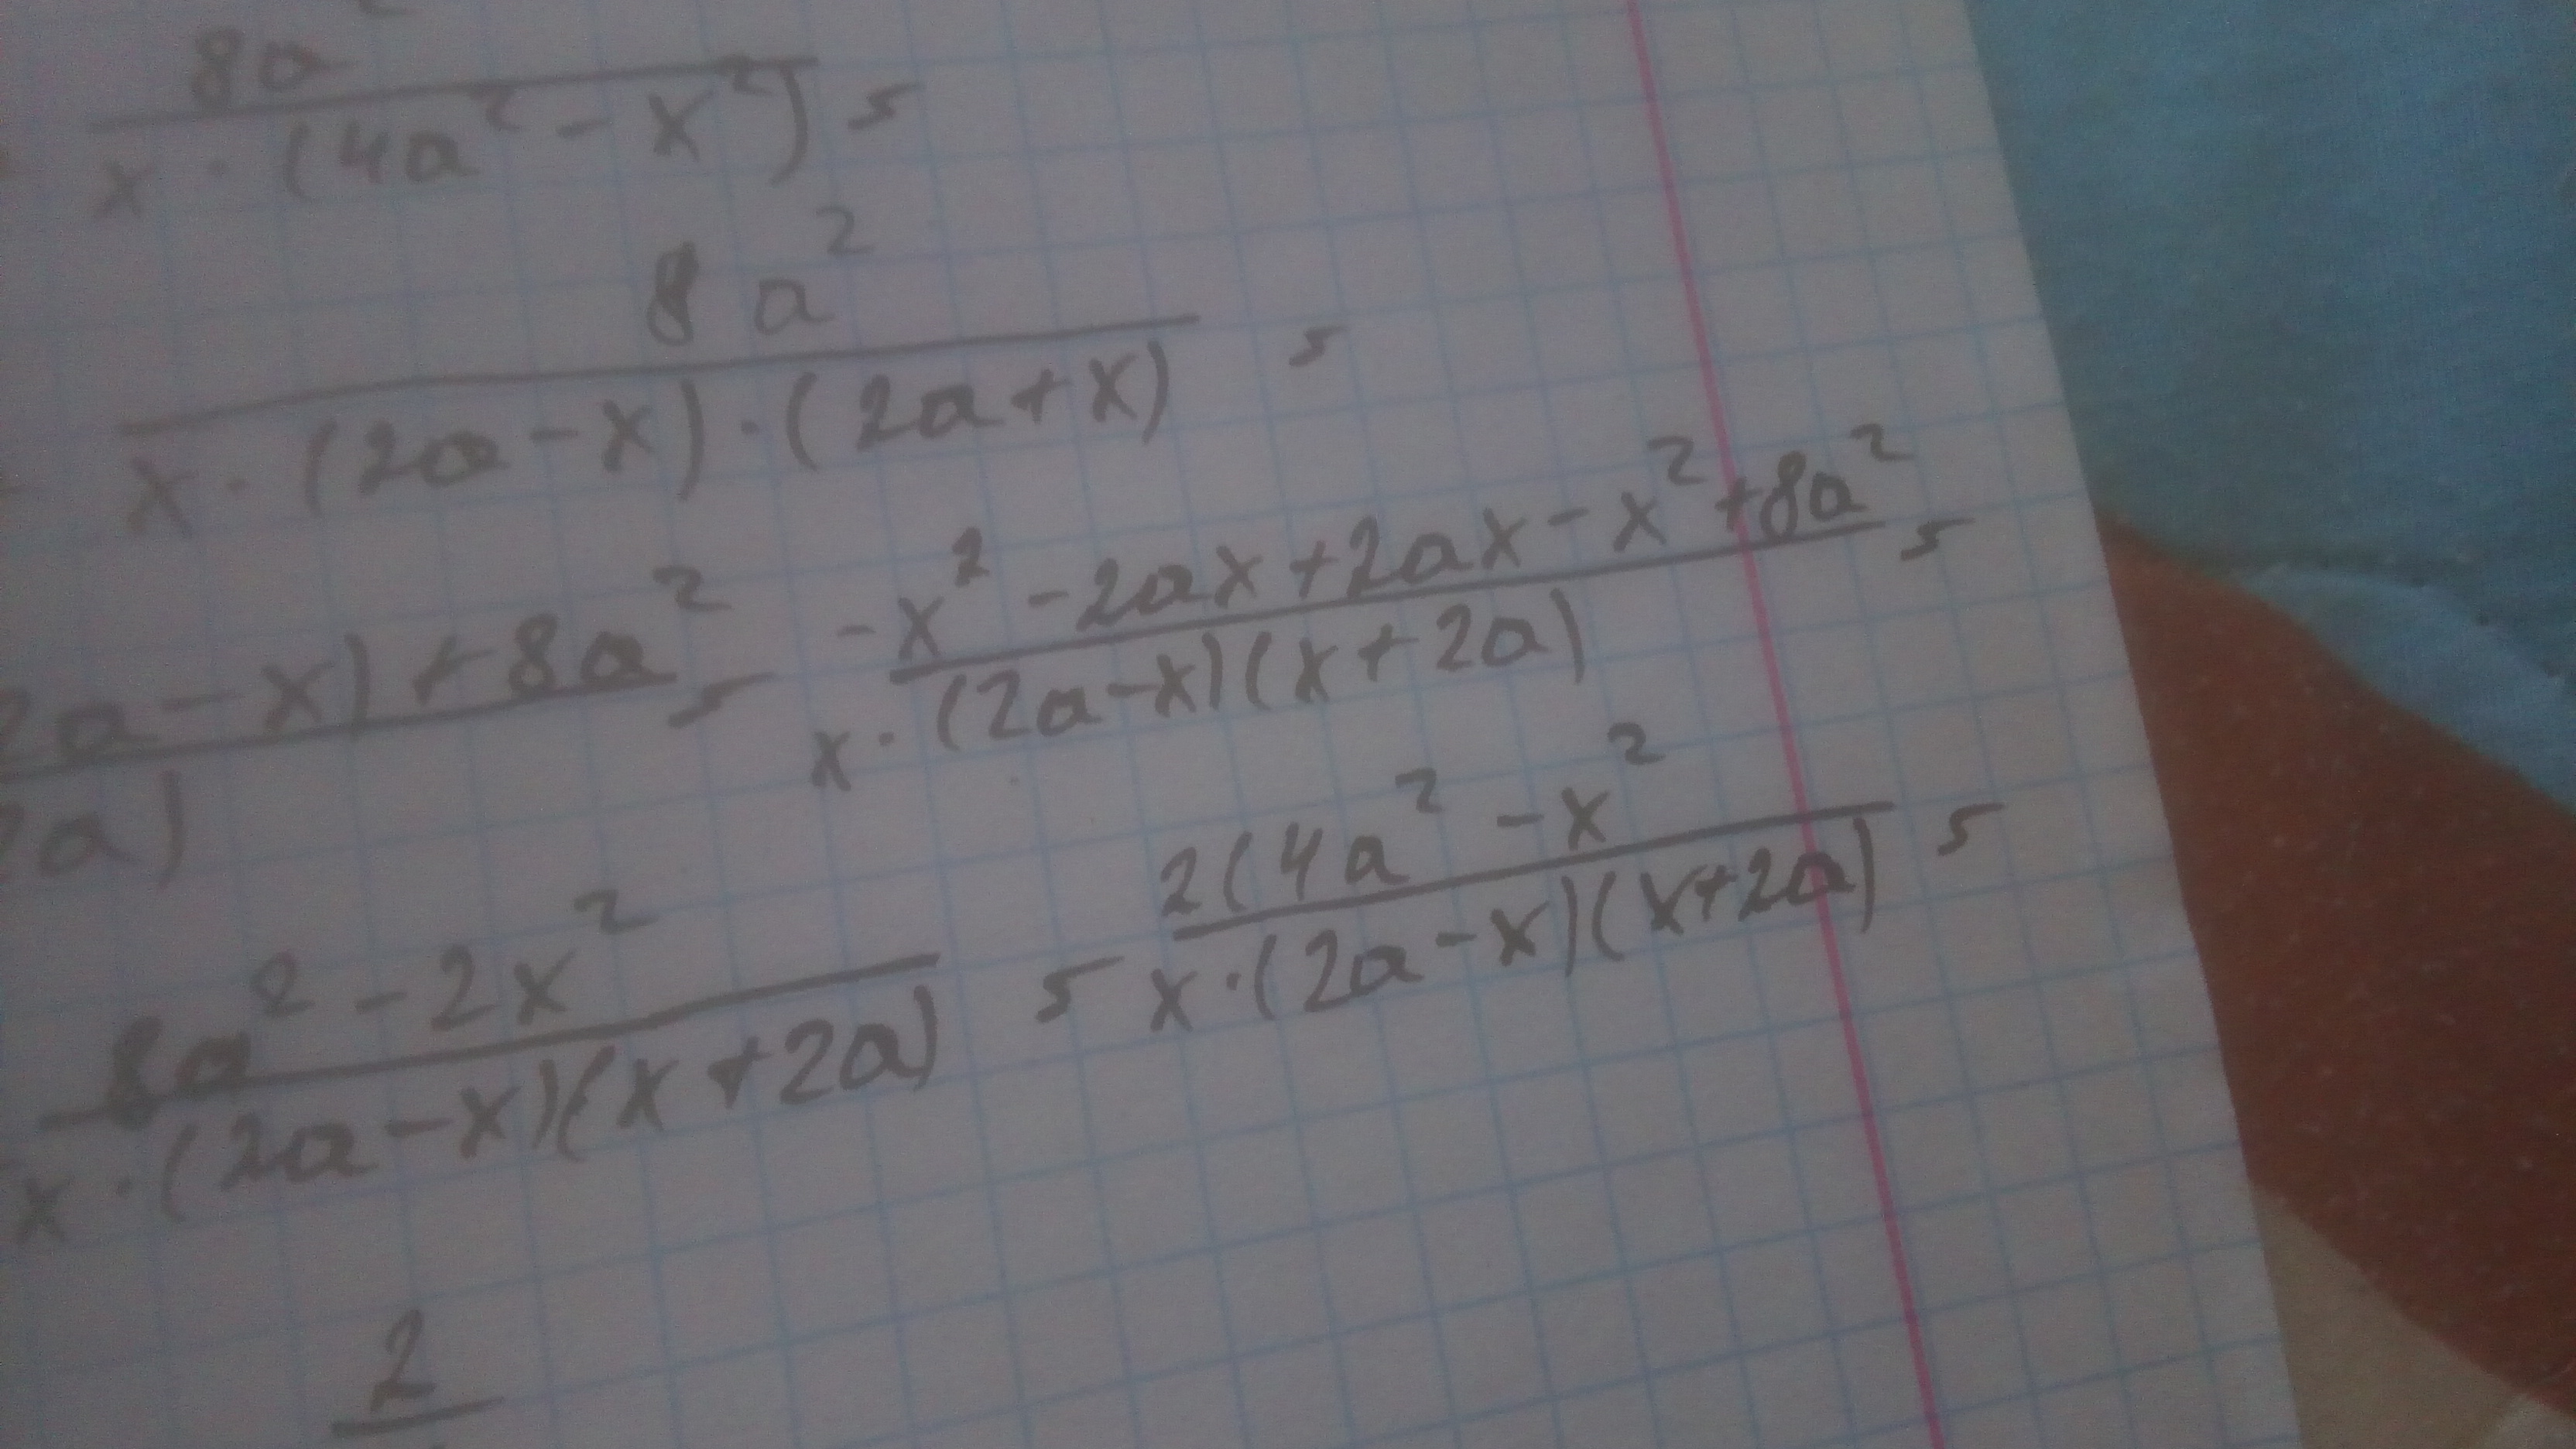 8a²
x · (4a² - x²) =
8 a²
x · (2a - x) · (2a + x) =
a - x) + 8a² = -x² - 2ax + 2ax - x² + 8a² =
a) x · (2a - x)(x + 2a)
8a² - 2x² = 2(4a² - x² =
x · (2a - x)(x + 2a) x · (2a - x)(x + 2a)
2